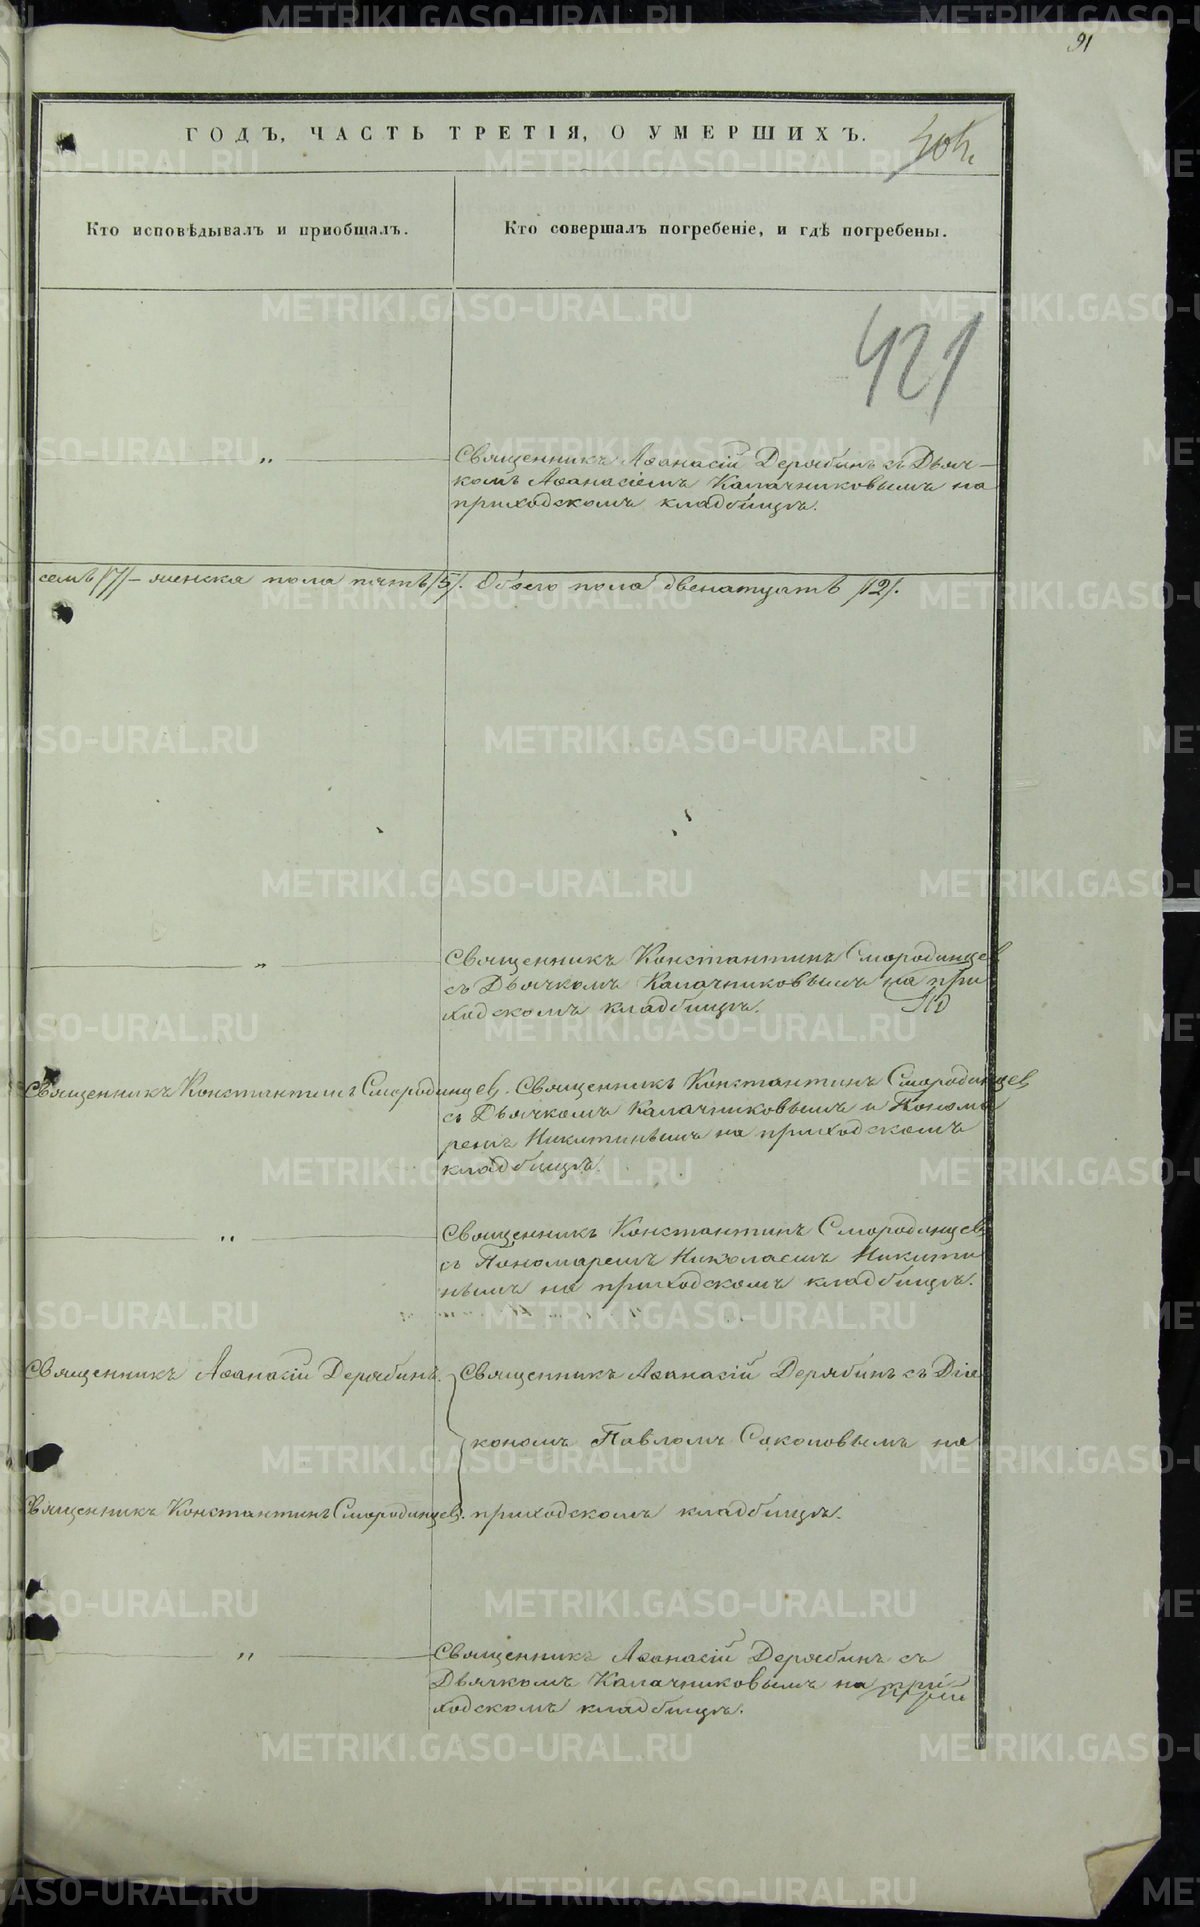 91
ГОДЪ, ЧАСТЬ ТРЕТІЯ, О УМЕРШИХЪ.
Кто исповѣдывалъ и приобщалъ.
Кто совершалъ погребеніе, и гдѣ погребены.
421
„ Священникъ Аѳанасій Дерябинъ съ Дьяч-
комъ Аѳанасіемъ Калачниковымъ на
приходскомъ кладбищѣ.
семь /7/ – женска пола пять /5/. Обоего пола двенатцать /12/.
„ Священникъ Константинъ Смородинцев
съ Дьячкомъ Калачниковымъ на при
ходскомъ кладбищѣ.
Священникъ Константинъ Смородинцев. Священникъ Константинъ Смородинцев
съ Дьячкомъ Калачниковымъ и Понома
ремъ Никитинымъ на приходскомъ
кладбищѣ.
„ Священникъ Константинъ Смородинцев
съ Пономаремъ Николаемъ Никити
нымъ на приходскомъ кладбищѣ.
Священникъ Аѳанасій Дерябинъ. Священникъ Аѳанасій Дерябинъ съ Діа
кономъ Павломъ Соколовымъ на
Священникъ Константинъ Смородинцев. приходскомъ кладбищѣ.
„ Священникъ Аѳанасій Дерябинъ съ
Дьячкомъ Калачниковымъ на при
ходскомъ кладбищѣ.
METRIKI.GASO-URAL.RU